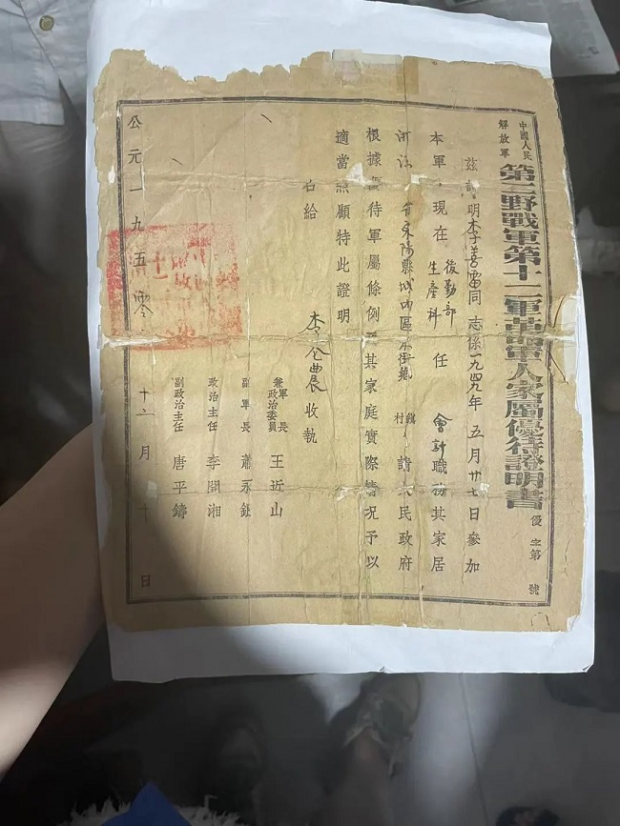 中國人民
解放軍
第二野戰軍第十二軍革命軍人家屬優待證明書
優字第 號
茲證明李善富同志係一九四九年五月廿七日參加
本軍現在後勤部生產科任會計職務其家居
省 縣城內區 鎮村請 人民政府
根據優待軍屬條例 其家庭實際情况予以
適當照顧特此證明
右給
李公農收執
軍長兼政治委員 王近山
副軍長 蕭永銀
政治主任 李開湘
副政治主任 唐平鑄
公元一九五零 十二月 十日